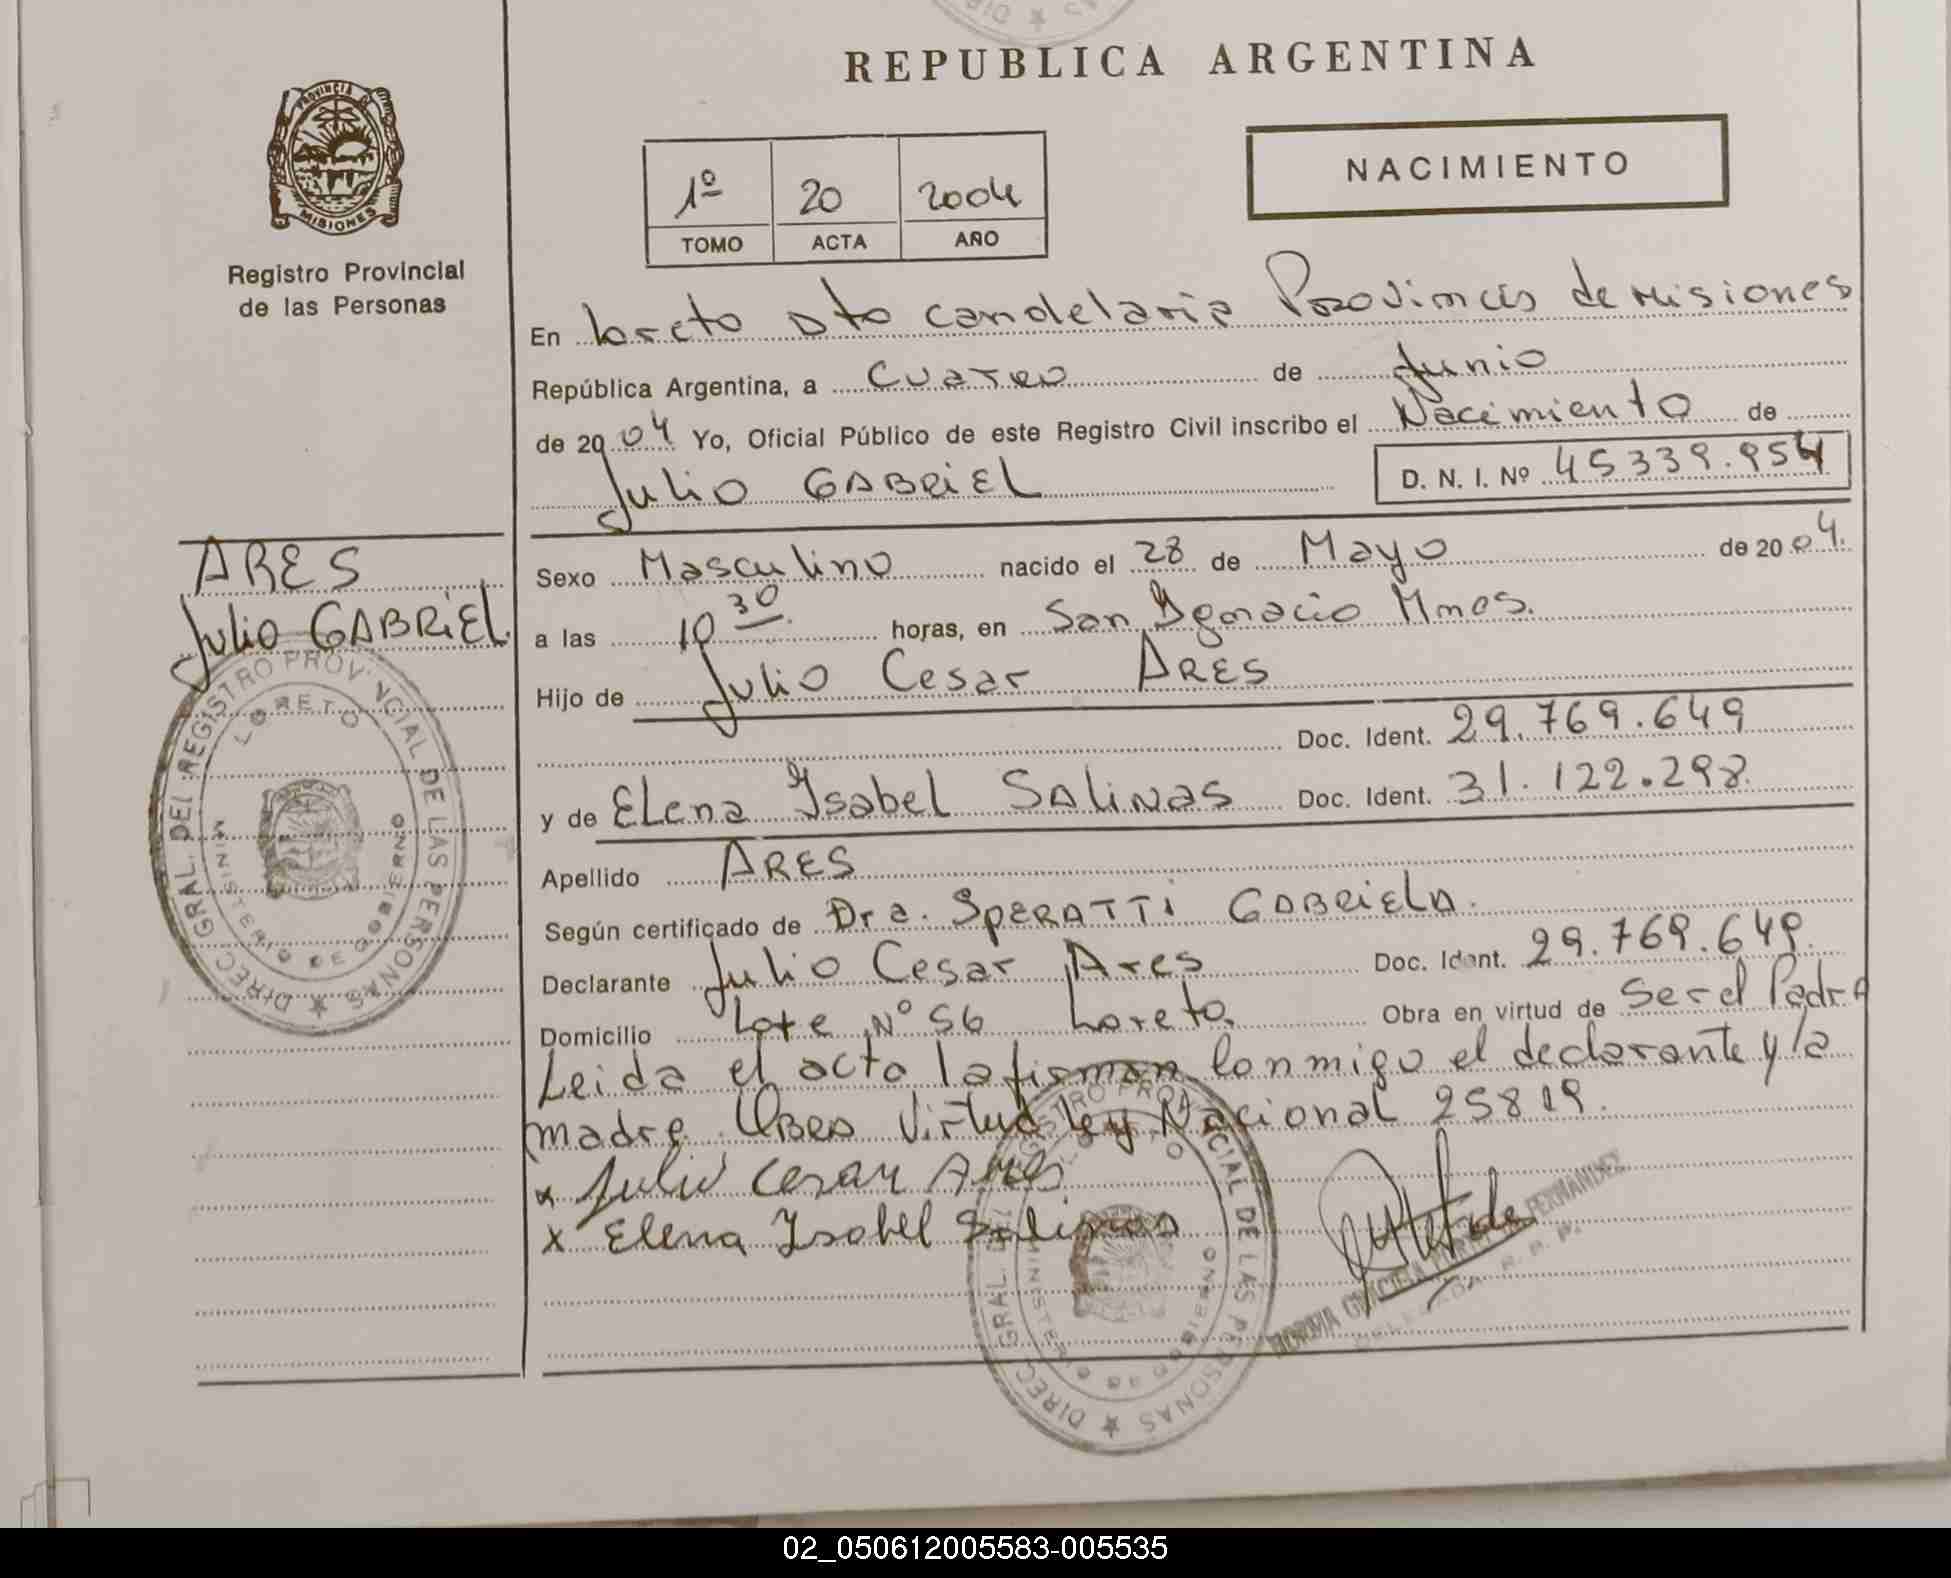 REPUBLICA ARGENTINA
PROVINCIA DE
MISIONES
Registro Provincial
de las Personas
1º 20 2004
TOMO ACTA AÑO
NACIMIENTO
En Loreto Dto Candelaria Provincia de Misiones
República Argentina, a Cuatro de Junio
de 2004 Yo, Oficial Público de este Registro Civil inscribo el Nacimiento de
Julio GABRIEL D. N. I. Nº 45339.954
ARES
Julio GABRIEL
Sexo Masculino nacido el 28 de Mayo de 2004.
a las 10 30 horas, en San Ygnacio Mnes.
Hijo de Julio Cesar ARES
Doc. Ident. 29.769.649
y de Elena Ysabel SALINAS Doc. Ident. 31.122.298
Apellido ARES
Según certificado de Dra. SPERATTI GABRIELA.
Declarante Julio Cesar Ares Doc. Ident. 29.769.649
Domicilio Lote Nº 56 Loreto. Obra en virtud de Ser el Padre
Leida el acta la firman Conmigo el declarante y la
madre. Obro Virtud Ley Nacional 25819.
x Julio Cesar Ares
x Elena Ysabel Salinas
DIREC. GRAL. DEL REGISTRO PROVINCIAL DE LAS PERSONAS
LORETO
MINISTERIO DE GOBIERNO
DIREC. GRAL. DEL REGISTRO PROVINCIAL DE LAS PERSONAS
MINISTERIO DE GOBIERNO
NORMA GRACIELA FERNANDEZ
DELEGADA R. P. P.
02_050612005583-005535